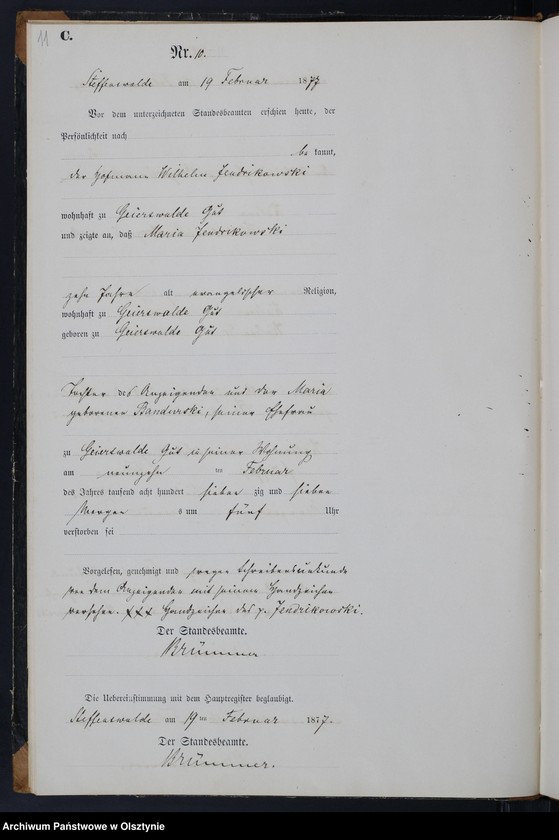 11
C.
Nr. 10.
Steffenswalde am 19 Februar 1877
Vor dem unterzeichneten Standesbeamten erschien heute, der
Persönlichkeit nach
be kannt,
der Hofmann Wilhelm Jendrikowski
wohnhaft zu Geierswalde Gut
und zeigte an, daß Maria Jendrikowski
zehn Jahre alt evangelischer Religion,
wohnhaft zu Geierswalde Gut
geboren zu Geierswalde Gut
Tochter des Anzeigenden und der Maria
geborenen Bandurski, seiner Ehefrau
zu Geierswalde Gut in seiner Wohnung
am neunzehn ten Februar
des Jahres tausend acht hundert sieben zig und sieben
Morgen s um fünf Uhr
verstorben sei
Vorgelesen, genehmigt und wegen Schreibensunkunde
von dem Anzeigenden mit seinem Handzeichen
versehen. xxx Handzeichen des p. Jendrikowski.
Der Standesbeamte.
Brümmer
Die Uebereinstimmung mit dem Hauptregister beglaubigt.
Steffenswalde am 19ten Februar 1877.
Der Standesbeamte.
Brümmer.
Archiwum Państwowe w Olsztynie